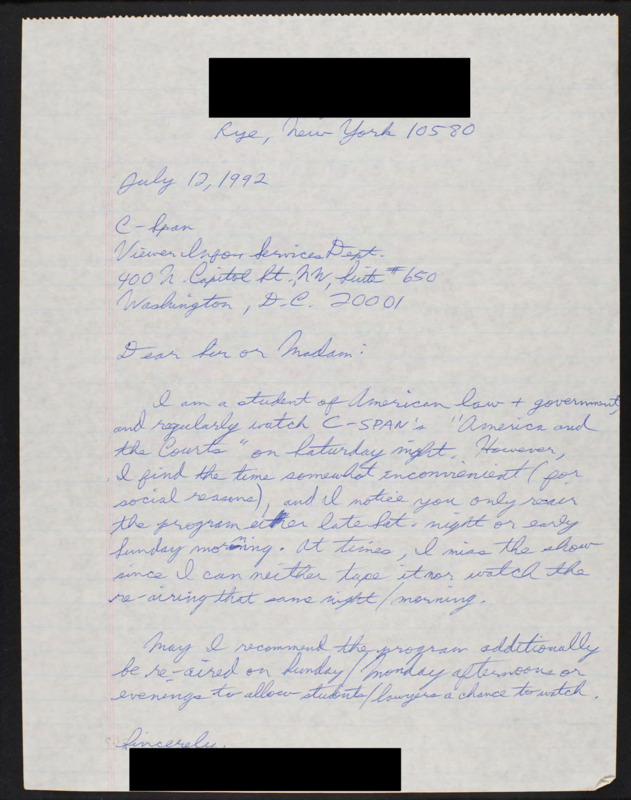 Rye, New York 10580
July 12, 1992
C-Span
Viewer Infor Services Dept.
400 N. Capitol St., NW, Suite #650
Washington, D.C. 20001
Dear Sir or Madam:
I am a student of American law + government,
and regularly watch C-SPAN's "America and
the Courts" on Saturday night. However,
I find the time somewhat inconvienient (for
social reasons), and I notice you only reair
the program either late Sat. night or early
Sunday morning. At times, I miss the show
since I can neither tape it nor watch the
re-airing that same night/morning.
May I recommend the program additionally
be re-aired on Sunday/Monday afternoons or
evenings to allow students/lawyers a chance to watch.
Sincerely,